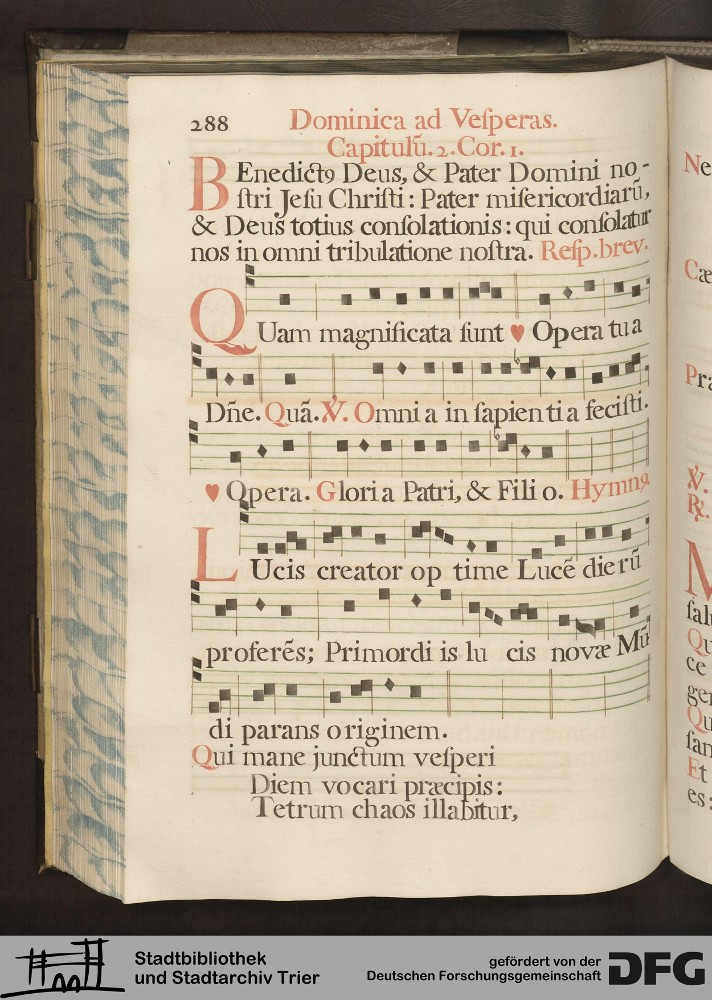 288
Dominica ad Veſperas.
Capitulū. 2. Cor. 1.
BEnedictꝰ Deus, & Pater Domini no-
ſtri Jeſu Chriſti: Pater miſericordiarū,
& Deus totius conſolationis: qui conſolatur
nos in omni tribulatione noſtra. Reſp. brev.
QUam magnificata ſunt ♥ Opera tua
Dñe. Quā. ℣. Omnia in ſapientia feciſti.
♥ Opera. Gloria Patri, & Filio. Hymnꝰ.
LUcis creator optime Lucē dierū
proferēs; Primordiis lucis novæ Mū-
di parans originem.
Qui mane junctum veſperi
Diem vocari præcipis:
Tetrum chaos illabitur,
Ne
Cæ
Pra
℣.
℟.
M
ſalu
Qu
ce
gen
Qu
ſan
Et
es:
Stadtbibliothek
und Stadtarchiv Trier
gefördert von der
Deutschen Forschungsgemeinschaft
DFG